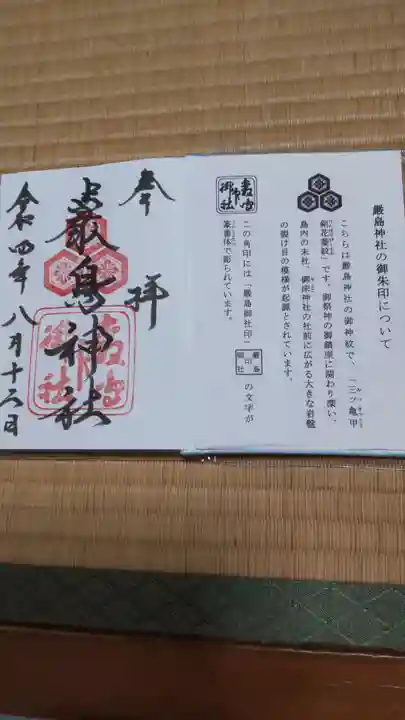 厳島神社の御朱印について
こちらは厳島神社の御神紋で、「三ッ亀甲
剣花菱紋」です。御祭神の御鎮座に関わり深い、
島内の末社、御床神社の社前に広がる大きな岩盤
の裂け目の模様が起源とされています。
この角印には「厳島御社印」の文字が
篆書体で彫られています。
奉
拝
厳島神社
令和四年八月十六日